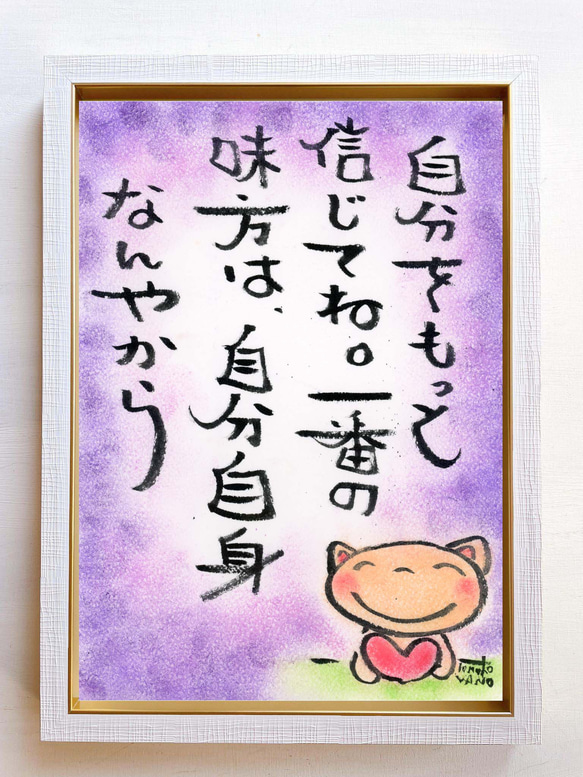 自分をもっと
信じてね。一番の
味方は、自分自身
なんやから